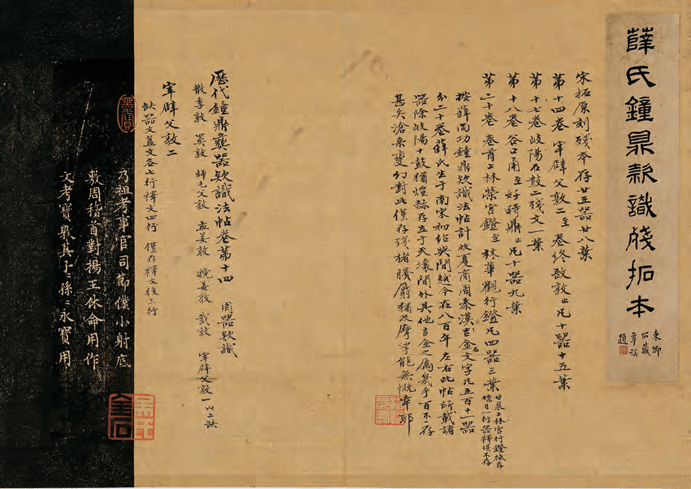 薛氏鐘鼎款識殘拓本
東鄉
石藏
章
題
宋拓原刻殘本存廿五器廿八葉
第十四卷宰辟父敦二至卷終敔敦止凡十器十五葉
第十七卷岐陽石鼓二殘文一葉
第十八卷谷口甬至好畤鼎止凡十器九葉
第二十卷卷首上林榮宮鐙至林華觀行鐙凡四器三葉
按薛尚功鐘鼎款識法帖計收夏商周秦漢吉金文字凡五百十一器
分二十卷薛氏生于南宋初紹興間越今在八百年左右此帖所載諸
器除岐陽十鼓猶煌赫存立于天壤間外其他吉金之屬幾乎百不存
甚矣滄桑變幻對此僅存殘楮賸麝猶及摩挲能無慨乎耶
歷代鐘鼎彝器款識法帖卷第十四 周器款識
散季敦 師毛父敦 孟姜敦 敦 宰辟父敦一以上缺
宰辟父敦二
缺器文蓋文各七行僅存釋文後三行
乃祖考事官司節僕小射底
敦周稽首對揚王休命用作
文考寶敦其子子孫孫永寶用